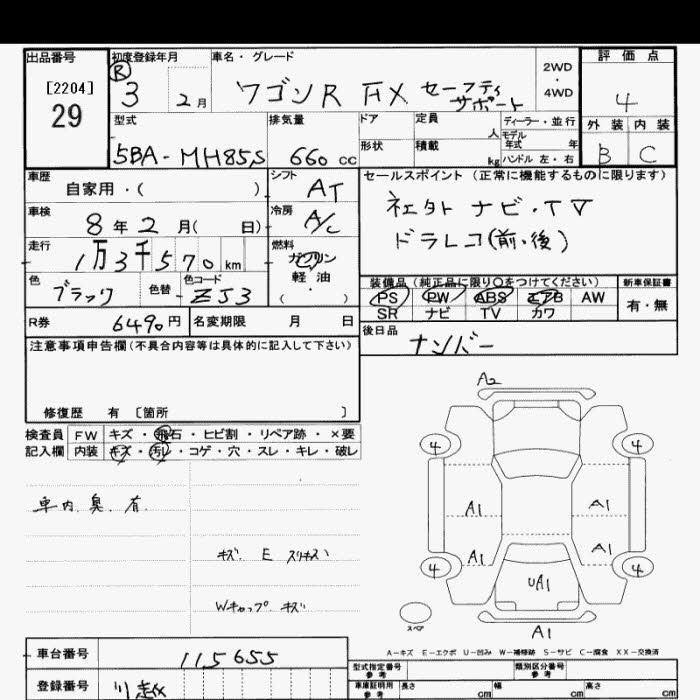 出品番号 初度登録年月 車名・グレード 2WD・4WD 評価点
[2204] 29 R 3 2月 ワゴンR FX セーフティサポート 4
型式 排気量 ドア 定員 人 ディーラー・並行 外装 内装
5BA-MH85S 660cc 形状 積載 kg モデル年式 年 ハンドル 左・右 B C
車歴 自家用・( ) シフト AT セールスポイント(正常に機能するものに限ります)
車検 8年2月( 日) 冷房 A/C 社外 ナビ・TV
走行 1万3千570km 燃料 ガソリン 軽・油 ( ) ドラレコ(前・後)
色 ブラック 色替 色コード ZJ3 装備品(純正品に限り○をつけてください) 新車保証書
PS PW ABS エアB AW 有・無
SR ナビ TV カワ
R券 6490円 名変期限 月 日 後日品 ナンバー
注意事項申告欄(不具合内容等は具体的に記入して下さい)
修復歴 有 [箇所 ]
検査員 FW キズ・飛石・ヒビ割・リペア跡・×要
記入欄 内装 キズ・汚レ・コゲ・穴・スレ・キレ・破レ
車内臭有
キズ E スリキズ
Wキャップ キズ
A2
4 4
A1 A1
A1 A1
4 4
UA1
スペア
A1
A-キズ E-エクボ U-凹み W-補修跡 S-サビ C-腐食 XX-交換済
車台番号 115655
登録番号
型式指定番号 参考 類別区分番号 参考
車庫証明用 参考 長さ cm 幅 cm 高さ cm